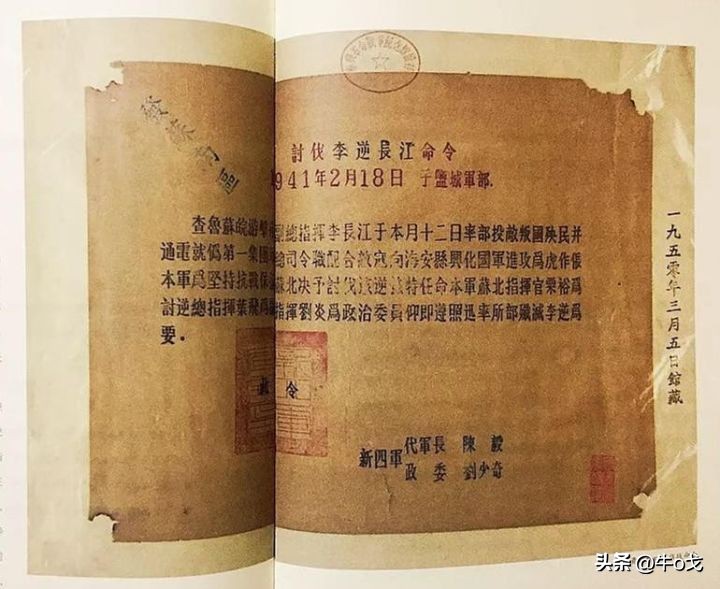 討伐李逆長江命令
941年2月18日 于鹽城軍部.
查魯蘇皖游擊總指揮李長江于本月十二日率部投敵叛國殃民并
通電就僞第一集團軍總司令職配合敵寇向海安縣興化國軍進攻爲虎作倀
本軍爲堅持抗戰保蘇北决予討伐該逆茲特任命本軍蘇北指揮官粟裕爲
討逆總指揮葉飛爲指揮劉炎爲政治委員仰即遵照迅率所部殲滅李逆爲
要.
令
新四軍
代軍長 陳毅
政委 劉少奇
一九五零年三月五日館藏
头条 @牛o戈